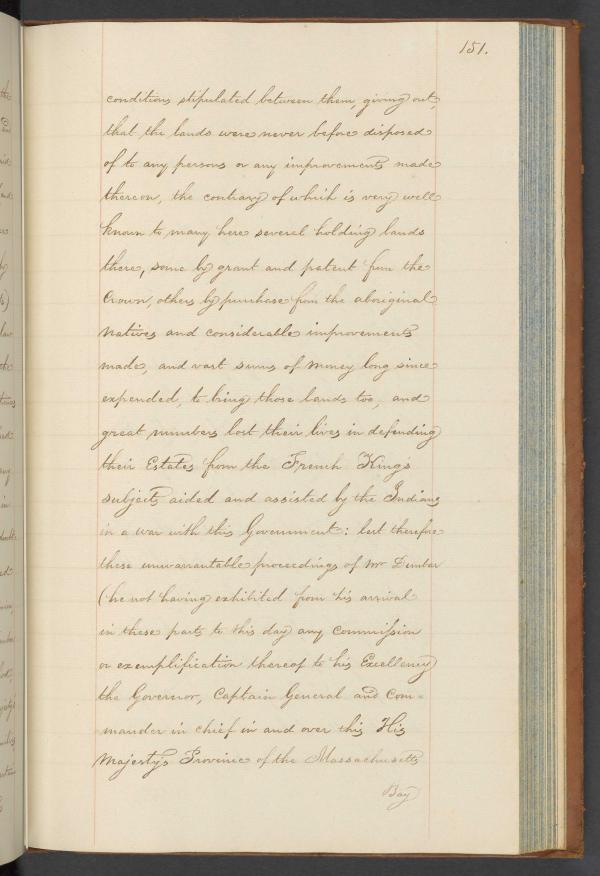 151.
conditions stipulated between them, giving out,
that the lands were never before disposed
of to any persons or any improvements made
thereon, the contrary of which is very well
known to many here several holding lands
there, some by grant and patent from the
Crown, others by purchase from the aboriginal
Natives and considerable improvements
made, and vast sums of money long since
expended, to bring those lands too, and
great numbers lost their lives in defending
their Estates from the French King's
subjects aided and assisted by the Indians
in a war with this Government: lest therefore
these unwarrantable proceedings of Mr Dunbar
(he not having exhibited from his arrival
in these parts to this day any Commission
or exemplification thereof to his Excellency
the Governor, Captain General and Com=
mander in chief in and over this His
Majesty's Province of the Massachusetts
Bay